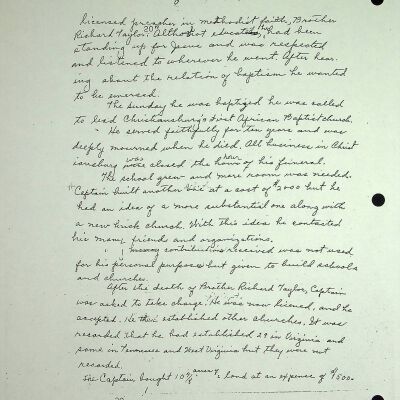 licensed preacher in methodist faith, Brother
Richard Taylor, Although not educated, he had been
standing up for Jesus and was respected
and listened to wherever he went. After hear-
ing about the relation of baptism he wanted
to be emersed.
The Sunday he was baptized he was called
to lead Christiansburg's First African Baptist church.
He served faithfully for ten years and was
deeply mourned when he died. All business in Christ
iansburg was closed the hour of his funeral.
The school grew and more room was needed.
Captain built another at a cost of $3,000 but he
had an idea of a more substantial one along with
a new brick church. With this idea he contacted
his many friend and organizations.
Money contributions received was not used
for his personal purpose but given to build schools
and churches.
After the death of Brother Richard Taylor, Captain
was asked to take charge. He was now licened, and he
accepted. He established other churches. It was
recorded that he had established 29 in Virginia and
some in Tennessee and West Virginia but they were not
recorded.
The Captain bought land at an expense of $1500.